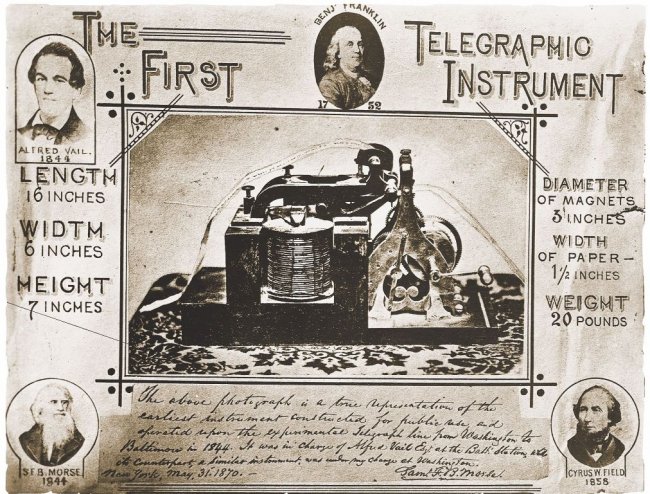 THE FIRST
BENJ FRANKLIN
1752
TELEGRAPHIC
INSTRUMENT
ALFRED VAIL.
1844
LENGTH
16 INCHES
WIDTH
6 INCHES
HEIGHT
7 INCHES
DIAMETER
OF MAGNETS
3 INCHES
WIDTH
OF PAPER-
1½ INCHES
WEIGHT
20 POUNDS
The above photograph is a true representation of the
earliest instrument constructed for public use, and
operated upon the experimental Telegraph line from Washington to
Baltimore in 1844. It was in charge of Alfred Vail Esqr at the Balt. Station, and
its counterpart, a similar instrument, was under my charge at Washington.
New York, May, 31. 1870. —
Saml. F. B. Morse.
S.F.B. MORSE
1844
CYRUS W. FIELD
1858